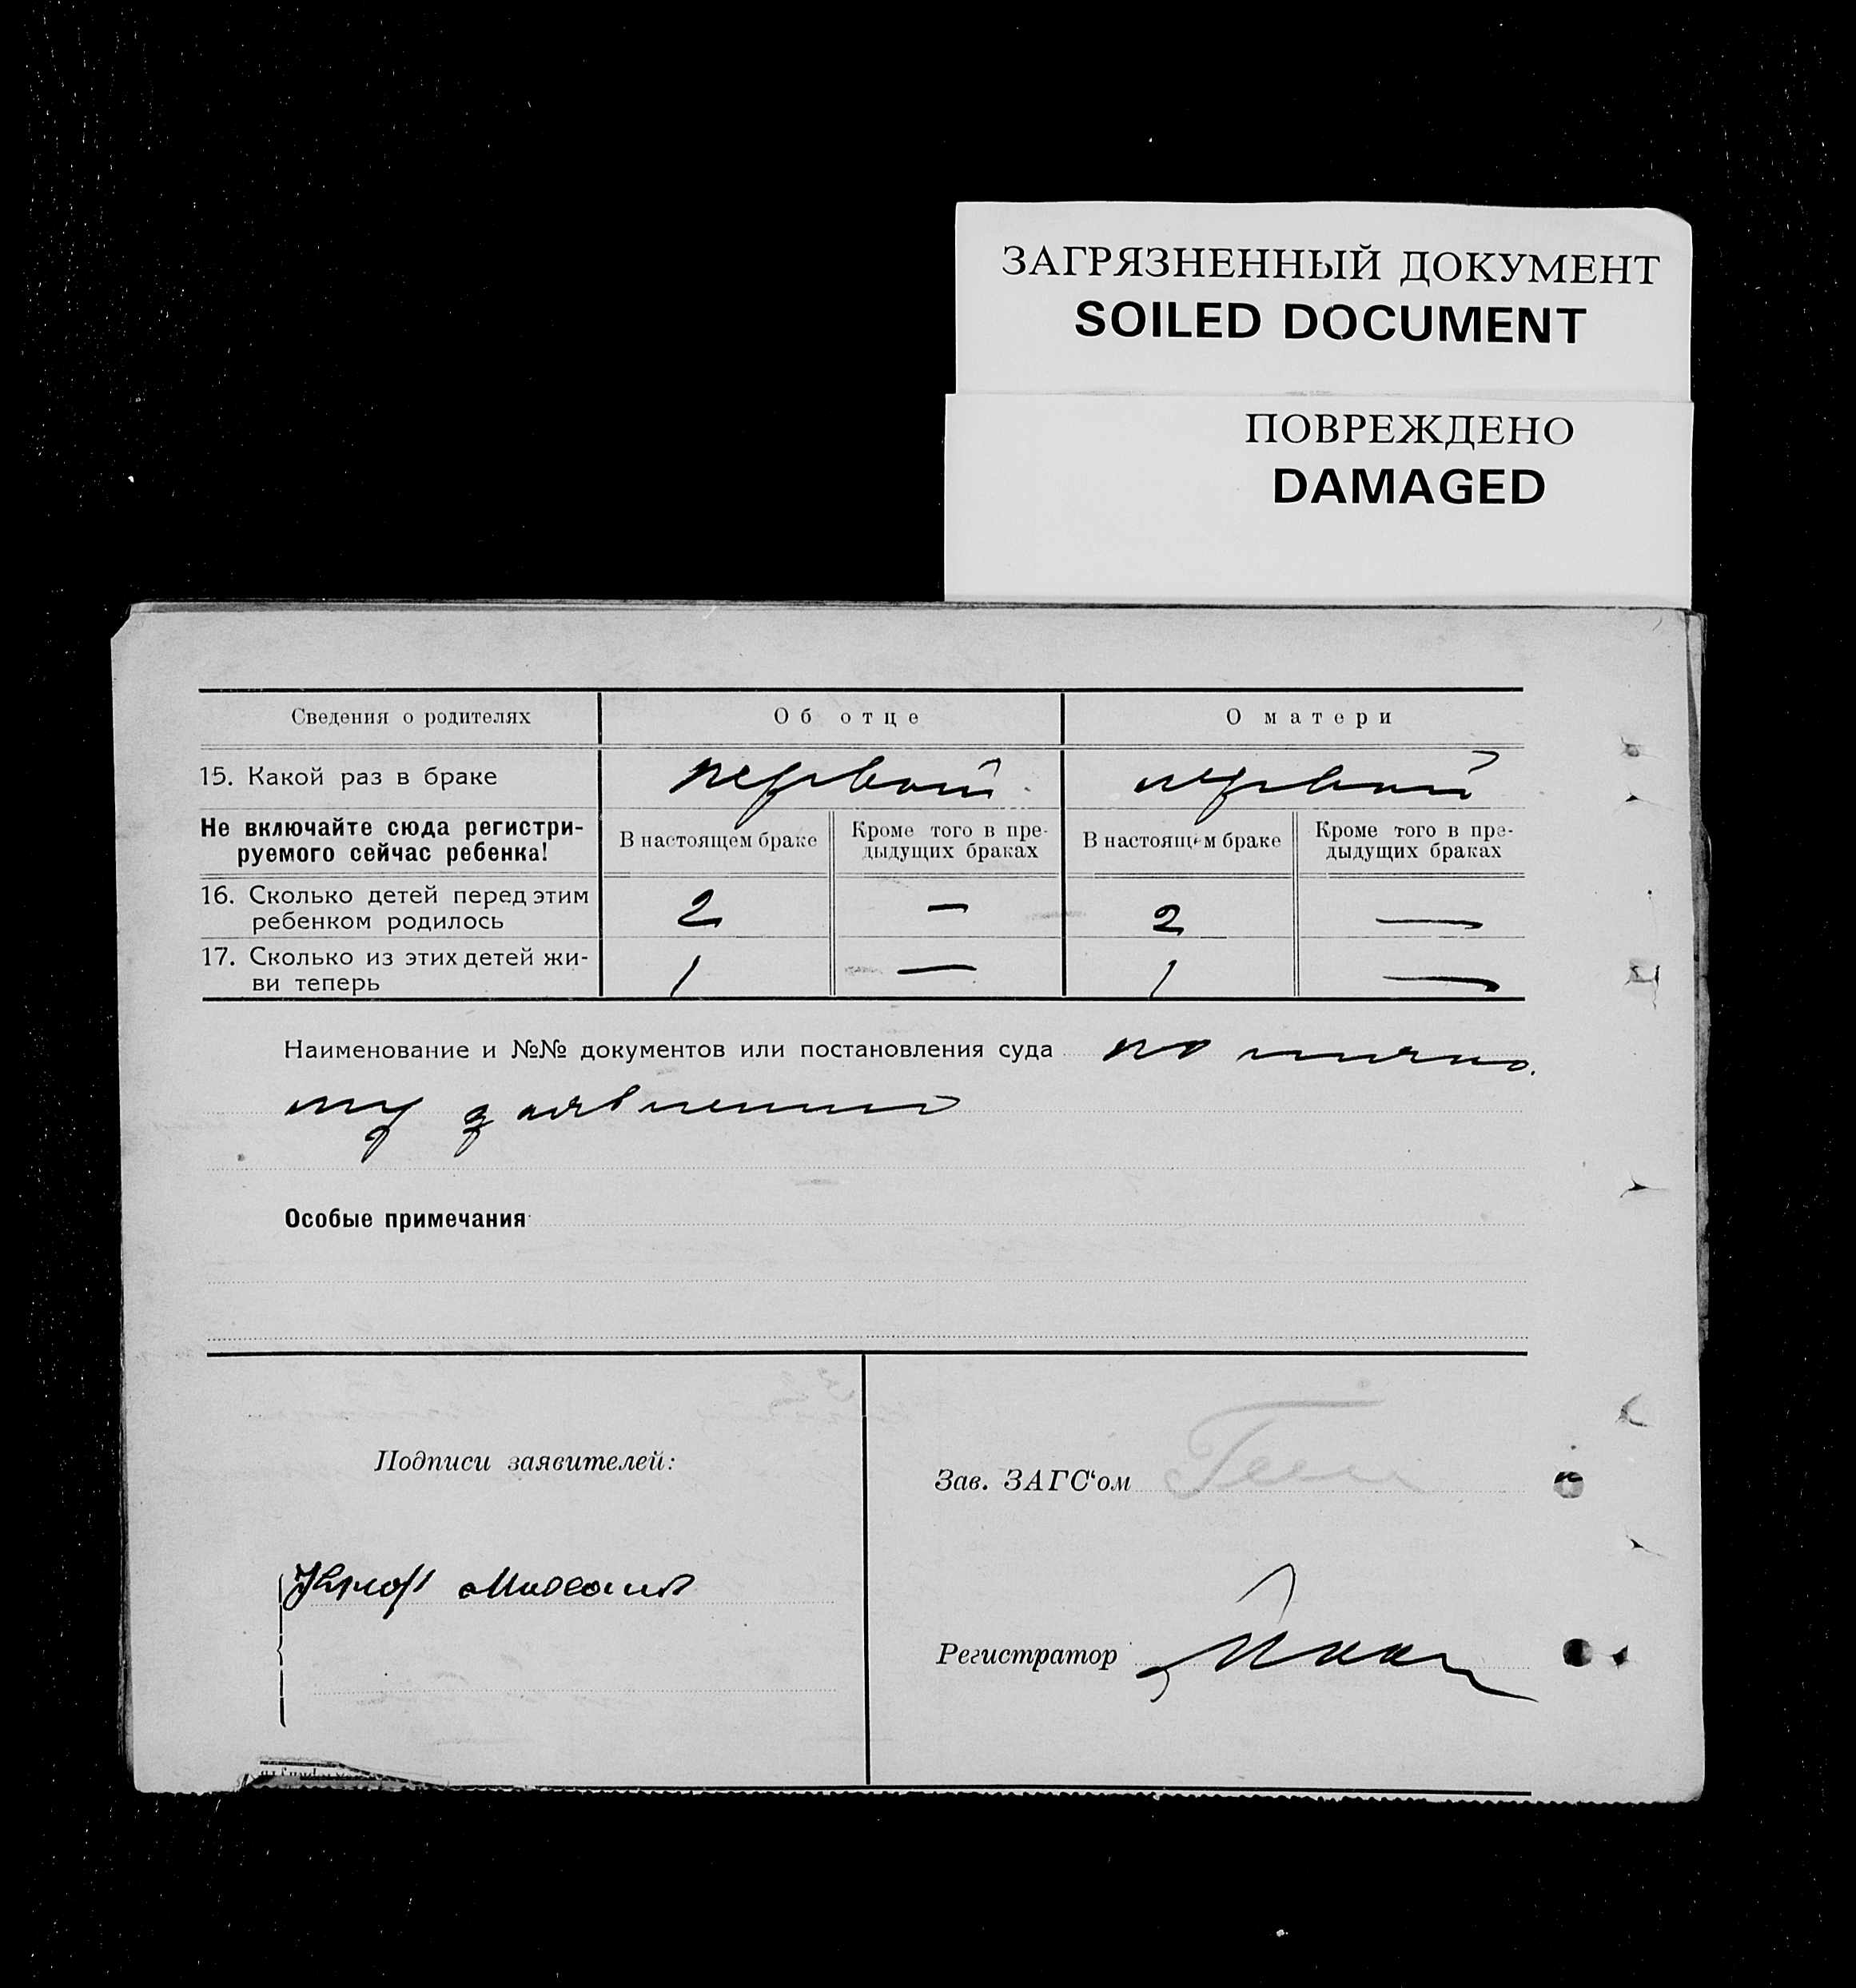 ЗАГРЯЗНЕННЫЙ ДОКУМЕНТ
SOILED DOCUMENT
ПОВРЕЖДЕНО
DAMAGED
Сведения о родителях Об отце О матери
15. Какой раз в браке первый первый
Не включайте сюда регистри-
руемого сейчас ребенка!
В настоящем браке Кроме того в пре-
дыдущих браках
В настоящем браке Кроме того в пре-
дыдущих браках
16. Сколько детей перед этим
ребенком родилось 2 — 2 —
17. Сколько из этих детей жи-
ви теперь 1 — 1 —
Наименование и №№ документов или постановления суда по лично.
му заявлению
Особые примечания
Подписи заявителей:
Зав. ЗАГС‘ом
Регистратор